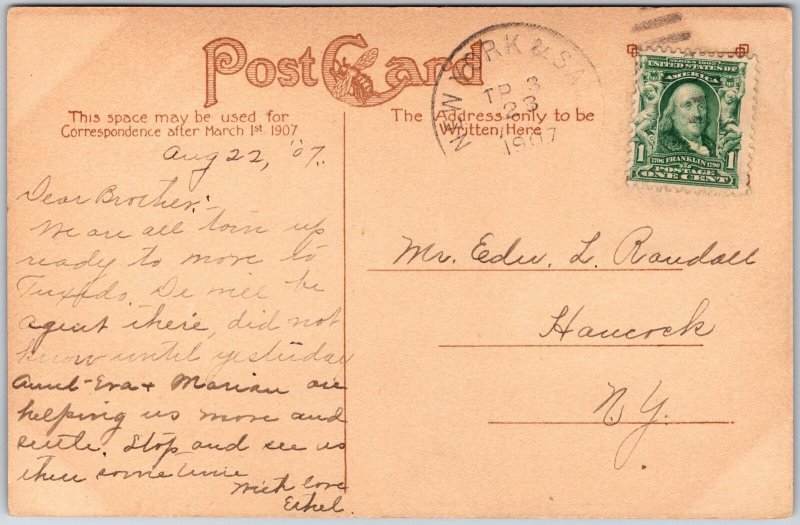 Post Card
This space may be used for
Correspondence after March 1st 1907
The Address only to be
Written Here
NEW YORK & S
TR 3
23
1907
SERIES 1902
UNITED STATES OF
AMERICA
1 1706 FRANKLIN 1790 1
POSTAGE
ONE CENT
Aug 22, '07.
Dear Brother:-
We are all torn up
ready to move to
Tuxedo. De will be
agent there, did not
know until yesterday
Aunt Eva + Marian are
helping us move and
settle. Stop and see us
then sometime
With love
Ethel.
Mr. Edw. L. Randall
Hancock
N.Y.